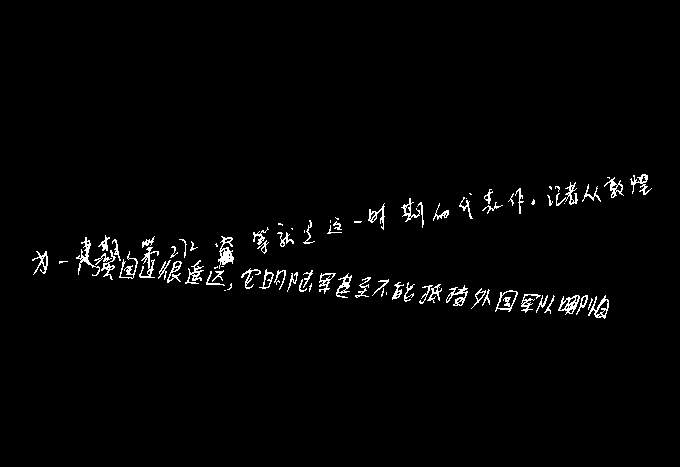 隋朝第272窟等就是这一时期的代表作。记者从敦煌
为一个强国还很遥远，它的陆军甚至不能抵挡外国军队哪怕